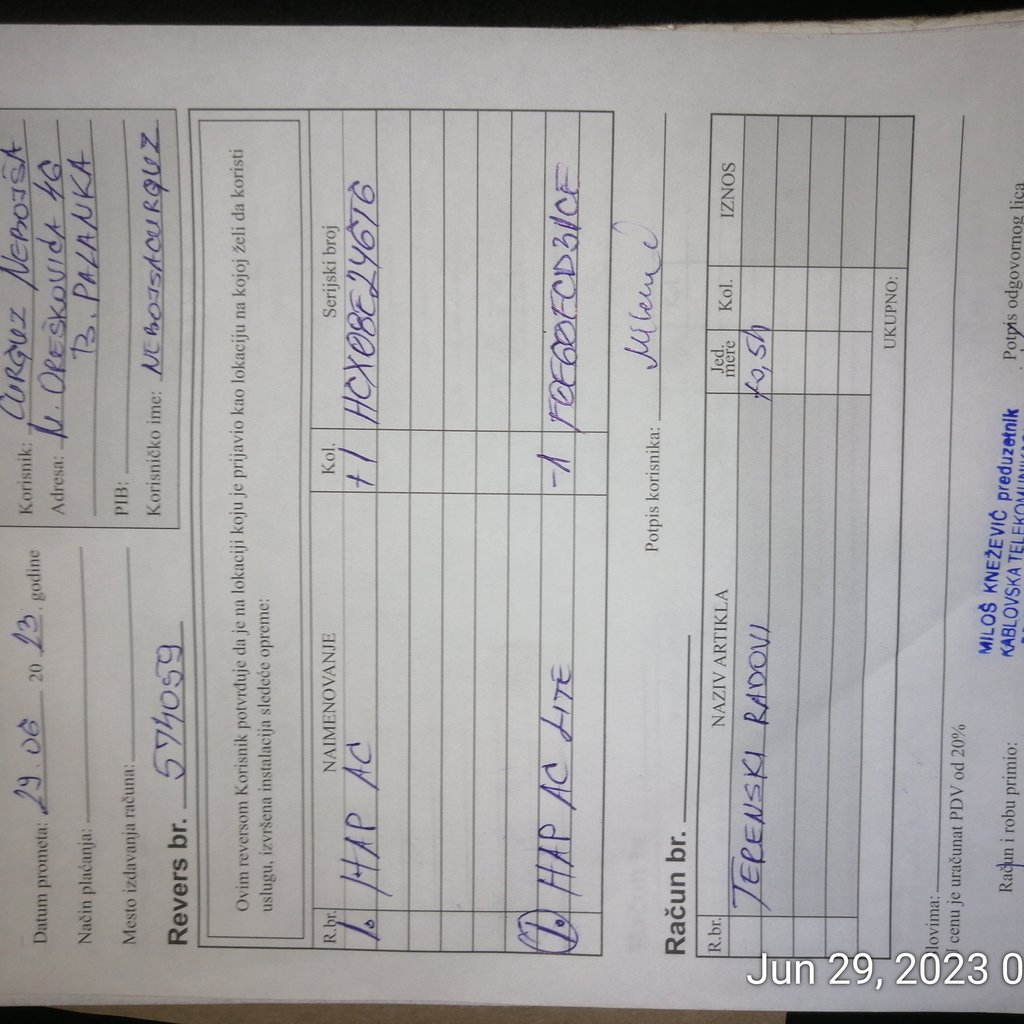 Datum prometa: 29.06 2023. godine
Način plaćanja:
Mesto izdavanja računa:
Revers br. 574059
Korisnik: ĆURGUZ NEBOJŠA
Adresa: M. OREŠKOVIĆA 46
B. PALANKA
PIB:
Korisničko ime: NEBOJSACURGUZ
Ovim reversom Korisnik potvrđuje da je na lokaciji koju je prijavio kao lokaciju na kojoj želi da koristi
uslugu, izvršena instalacija sledeće opreme:
R.br. NAIMENOVANJE Kol. Serijski broj
1. HAP AC +1 HCX08E2Y6T6
1. HAP AC LITE -1
Potpis korisnika:
Račun br.
R.br. NAZIV ARTIKLA Jed. mere Kol. IZNOS
TERENSKI RADOVI
UKUPNO:
U cenu je uračunat PDV od 20%
Račun i robu primio:
Potpis odgovornog lica
MILOŠ KNEŽEVIĆ preduzetnik
Jun 29, 2023